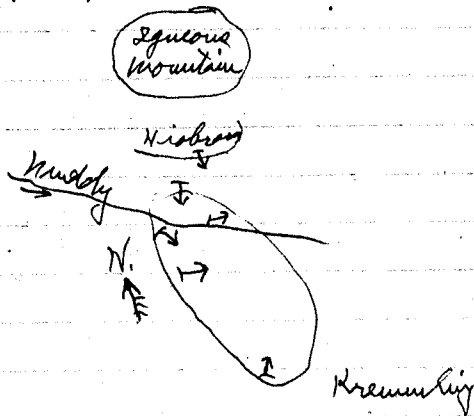 Igneous
mountain
Niobrara
Muddy
N.
Kremmling